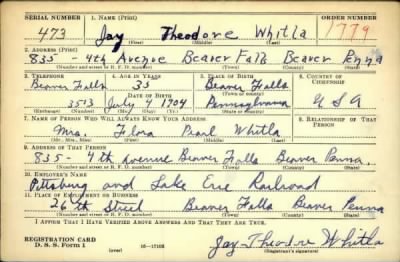 SERIAL NUMBER 1. NAME (Print) ORDER NUMBER
473 Jay Theodore Whitla 1779
(First) (Middle) (Last)
2. ADDRESS (Print)
835 - 4th Avenue Beaver Falls Beaver Penna
(Number and street or R. F. D. number) (Town) (County) (State)
3. TELEPHONE 4. AGE IN YEARS 5. PLACE OF BIRTH 6. COUNTRY OF CITIZENSHIP
Beaver Falls 35 Beaver Falls
DATE OF BIRTH (Town or county)
3513 July 4 1904 Pennsylvania U S A
(Exchange) (Number) (Mo.) (Day) (Yr.) (State or country)
7. NAME OF PERSON WHO WILL ALWAYS KNOW YOUR ADDRESS 8. RELATIONSHIP OF THAT PERSON
Mrs. Flora Pearl Whitla
(Mr., Mrs., Miss) (First) (Middle) (Last)
9. ADDRESS OF THAT PERSON
835 - 4th Avenue Beaver Falls Beaver Penna.
(Number and street or R. F. D. number) (Town) (County) (State)
10. EMPLOYER'S NAME
Pittsburg and Lake Erie Railroad
11. PLACE OF EMPLOYMENT OR BUSINESS
26th Street Beaver Falls Beaver Penna
(Number and street or R. F. D. number) (Town) (County) (State)
I AFFIRM THAT I HAVE VERIFIED ABOVE ANSWERS AND THAT THEY ARE TRUE.
REGISTRATION CARD
D. S. S. Form 1 (over) 16-17105 Jay Theodore Whitla
(Registrant's signature)